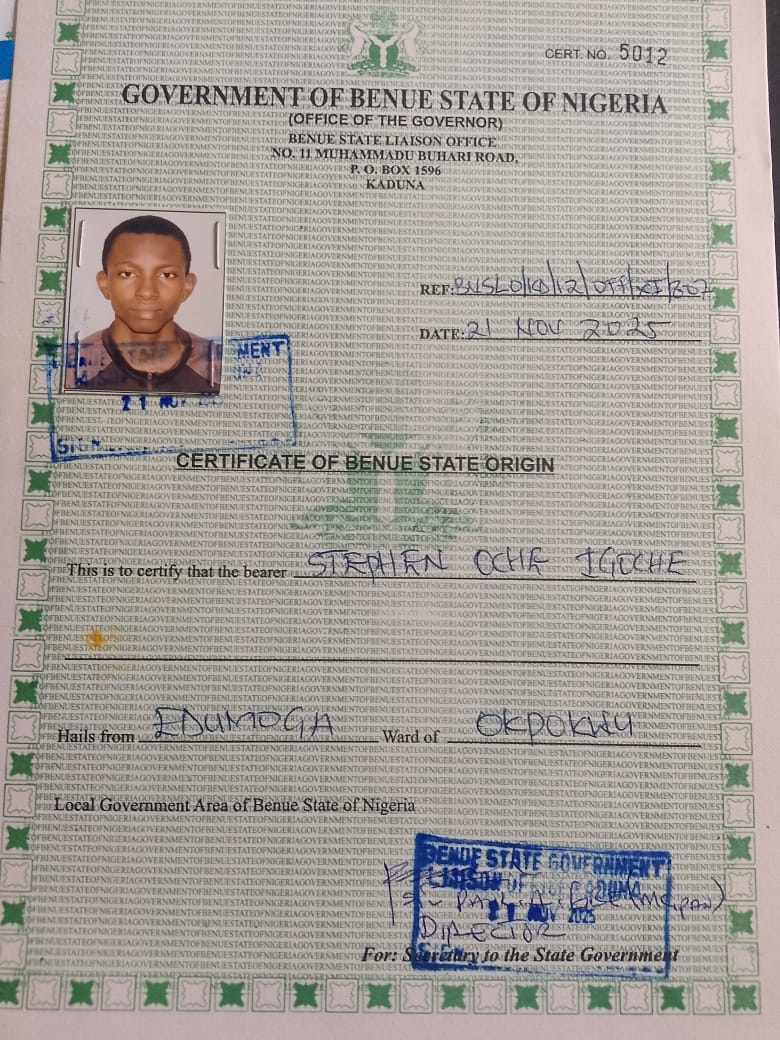 CERT. NO. 5012
GOVERNMENT OF BENUE STATE OF NIGERIA
(OFFICE OF THE GOVERNOR)
BENUE STATE LIAISON OFFICE
NO. 11 MUHAMMADU BUHARI ROAD,
P. O. BOX 1596
KADUNA
REF: BNSLO/KD/12/OFF/XI/307
DATE: 21 NOV 2025
MENT
21 NOV
SIGN
CERTIFICATE OF BENUE STATE ORIGIN
This is to certify that the bearer STEPHEN OCHE IGOCHE
Hails from EDUMOGA Ward of OKPOKWU
Local Government Area of Benue State of Nigeria
BENUE STATE GOVERNMENT
LIAISON OFFICE KADUNA
(MCIPAN)
21 NOV 2025
DIRECTOR
For: Secretary to the State Government